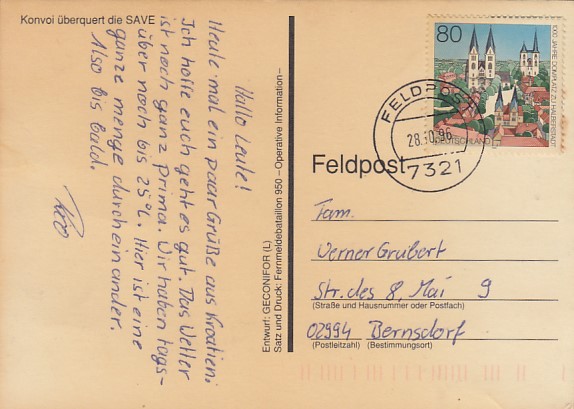 Konvoi überquert die SAVE
Hallo Leute!
Heute mal ein paar Grüße aus Kroatien.
Ich hoffe euch geht es gut. Das Wetter
ist noch ganz Prima. Wir haben tags-
über noch bis 25°C. Hier ist eine
ganze menge durcheinander.
Also bis bald.
Entwurf: GECONIFOR (L)
Satz und Druck: Fernmeldebataillon 950 – Operative Information –
80
1000 JAHRE DOMPLATZ ZU HALBERSTADT
DEUTSCHLAND
FELDPOST
28.10.96
7321
Feldpost
Fam.
Werner Grubert
Str. des 8. Mai 9
(Straße und Hausnummer oder Postfach)
02994 Bernsdorf
(Postleitzahl) (Bestimmungsort)